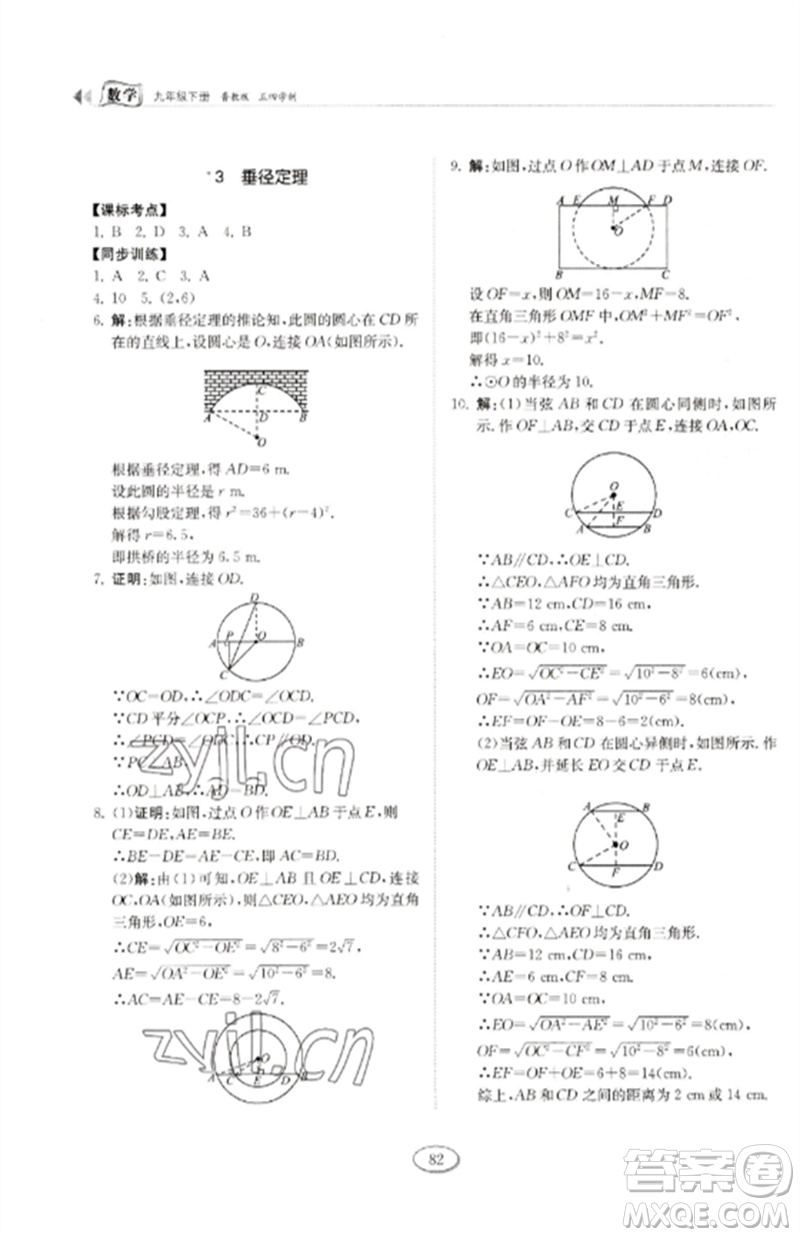 数学 九年级下册 鲁教版 五四学制
*3 垂径定理
【课标考点】
1. B 2. D 3. A 4. B
【同步训练】
1. A 2. C 3. A
4. 10 5. (2,6)
6. 解:根据垂径定理的推论知,此圆的圆心在 CD 所
在的直线上,设圆心是 O,连接 OA(如图所示).
C
A D B
O
根据垂径定理,得 AD=6 m.
设此圆的半径是 r m.
根据勾股定理,得 r²=36+(r-4)².
解得 r=6.5,
即拱桥的半径为 6.5 m.
7. 证明:如图,连接 OD.
D
A P O B
C
∵OC=OD,∴∠ODC=∠OCD.
∵CD 平分∠OCP,∴∠OCD=∠PCD.
∴∠PCD=∠ODC,∴CP∥OD.
∵PC⊥AB,
∴OD⊥AE,∴AD=BD.
8. (1)证明:如图,过点 O 作 OE⊥AB 于点 E,则
CE=DE,AE=BE.
∴BE-DE=AE-CE,即 AC=BD.
(2)解:由(1)可知,OE⊥AB 且 OE⊥CD,连接
OC,OA(如图所示),则△CEO,△AEO 均为直角
三角形,OE=6,
∴CE=√(OC²-OE²)=√(8²-6²)=2√7,
AE=√(OA²-OE²)=√(10²-6²)=8.
∴AC=AE-CE=8-2√7.
O
A C E D B
9. 解:如图,过点 O 作 OM⊥AD 于点 M,连接 OF.
A E M F D
O
B C
设 OF=x,则 OM=16-x,MF=8.
在直角三角形 OMF 中,OM²+MF²=OF²,
即(16-x)²+8²=x².
解得 x=10.
∴⊙O 的半径为 10.
10. 解:(1)当弦 AB 和 CD 在圆心同侧时,如图所
示.作 OF⊥AB,交 CD 于点 E,连接 OA,OC.
O
C E D
A F B
∵AB∥CD,∴OE⊥CD.
∴△CEO,△AFO 均为直角三角形.
∵AB=12 cm,CD=16 cm,
∴AF=6 cm,CE=8 cm,
∵OA=OC=10 cm,
∴EO=√(OC²-CE²)=√(10²-8²)=6(cm),
OF=√(OA²-AF²)=√(10²-6²)=8(cm),
∴EF=OF-OE=8-6=2(cm).
(2)当弦 AB 和 CD 在圆心异侧时,如图所示.作
OE⊥AB,并延长 EO 交 CD 于点 F.
A B
E
O
C F D
∵AB∥CD,∴OF⊥CD.
∴△CFO,△AEO 均为直角三角形.
∵AB=12 cm,CD=16 cm,
∴AE=6 cm,CF=8 cm.
∵OA=OC=10 cm,
∴EO=√(OA²-AE²)=√(10²-6²)=8(cm),
OF=√(OC²-CF²)=√(10²-8²)=6(cm),
∴EF=OF+OE=6+8=14(cm).
综上,AB 和 CD 之间的距离为 2 cm 或 14 cm.
zyjl.cn
zyjl.cn
82
答案圈
MXQE.COM